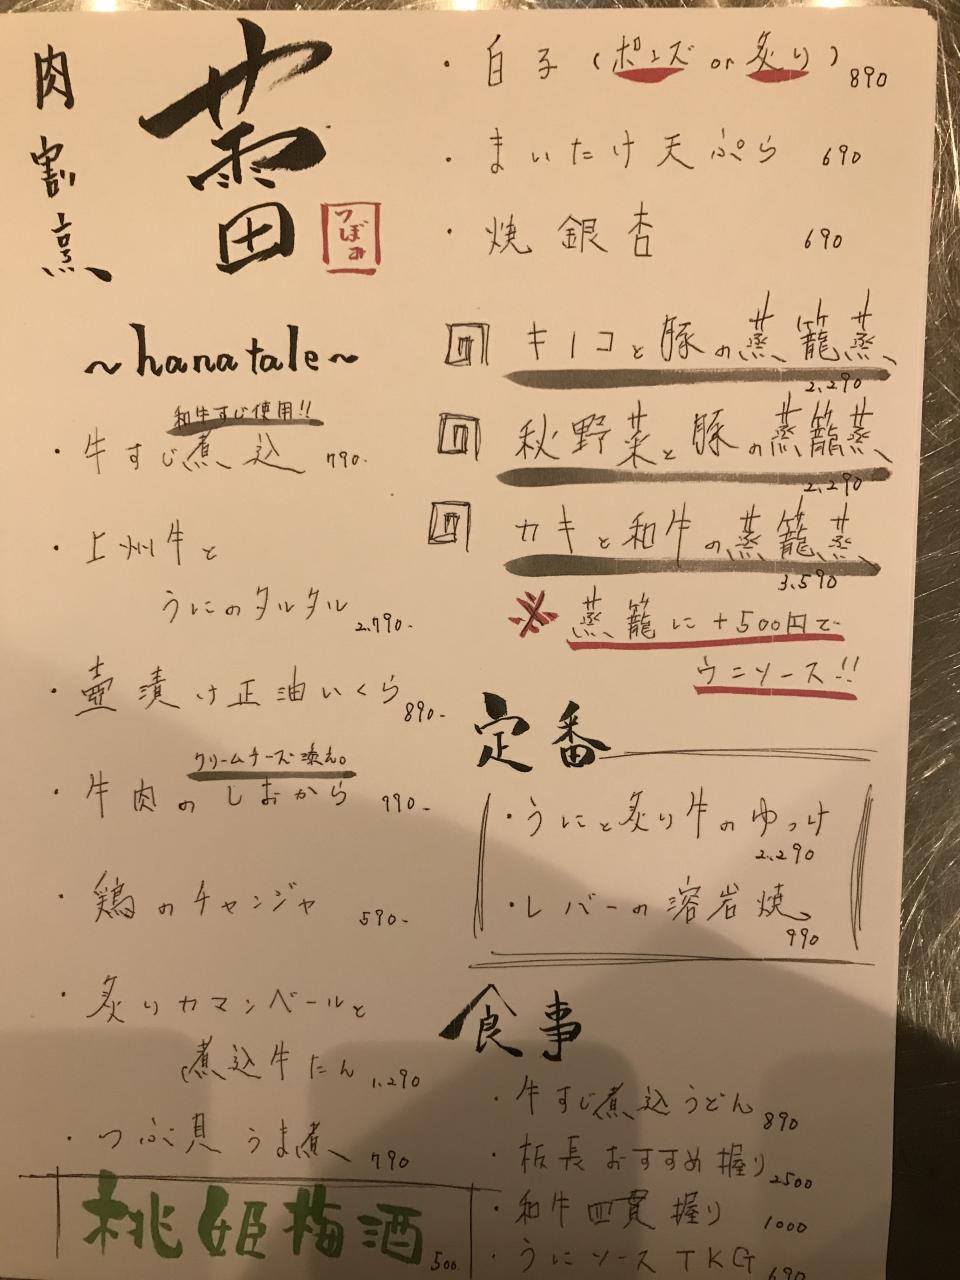 肉割烹
蕾
つぼみ
~hana tale~
和牛すじ使用!!
・牛すじ煮込 790-
・上州牛と
うにのタルタル 2,790-
・壺漬け正油いくら 890-
クリームチーズ添え。
・牛肉のしおから 990-
・鶏のチャンジャ 590-
・炙りカマンベールと
煮込牛たん 1,290
・つぶ貝うま煮 790
桃姫梅酒 500
・白子(ポンズor炙り) 890
・まいたけ天ぷら 690
・焼銀杏 690
キノコと豚の蒸籠蒸
2,290
秋野菜と豚の蒸籠蒸
2,290
カキと和牛の蒸籠蒸
3,590
※蒸籠に+500円で
ウニソース!!
定番
・うにと炙り牛のゆっけ
2,290
・レバーの溶岩焼
990
食事
・牛すじ煮込うどん 890
・板長おすすめ握り 2500
・和牛四貫握り 1000
・うにソースTKG 690